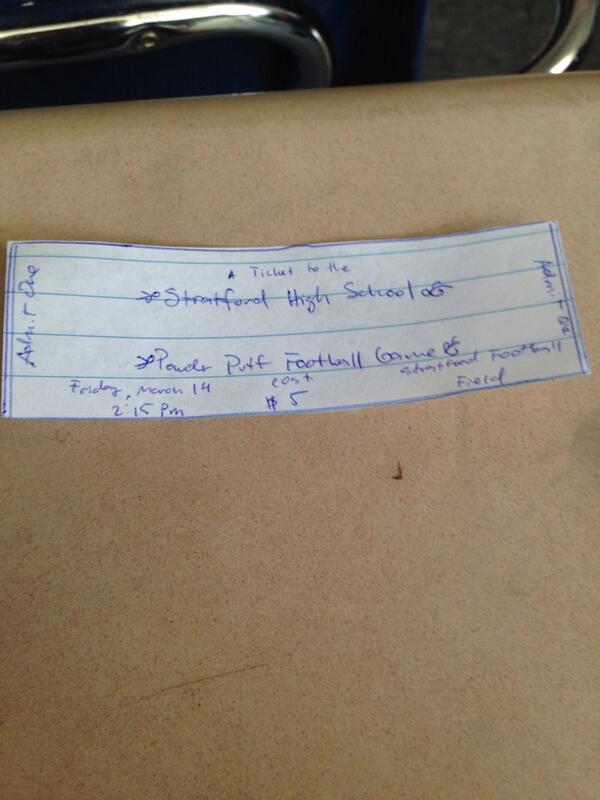 Admit One
A Ticket to the
Stratford High School
Powder Puff Football Game
Friday, March 14
2:15 pm
cost
$5
Stratford Football
Field
Admit One